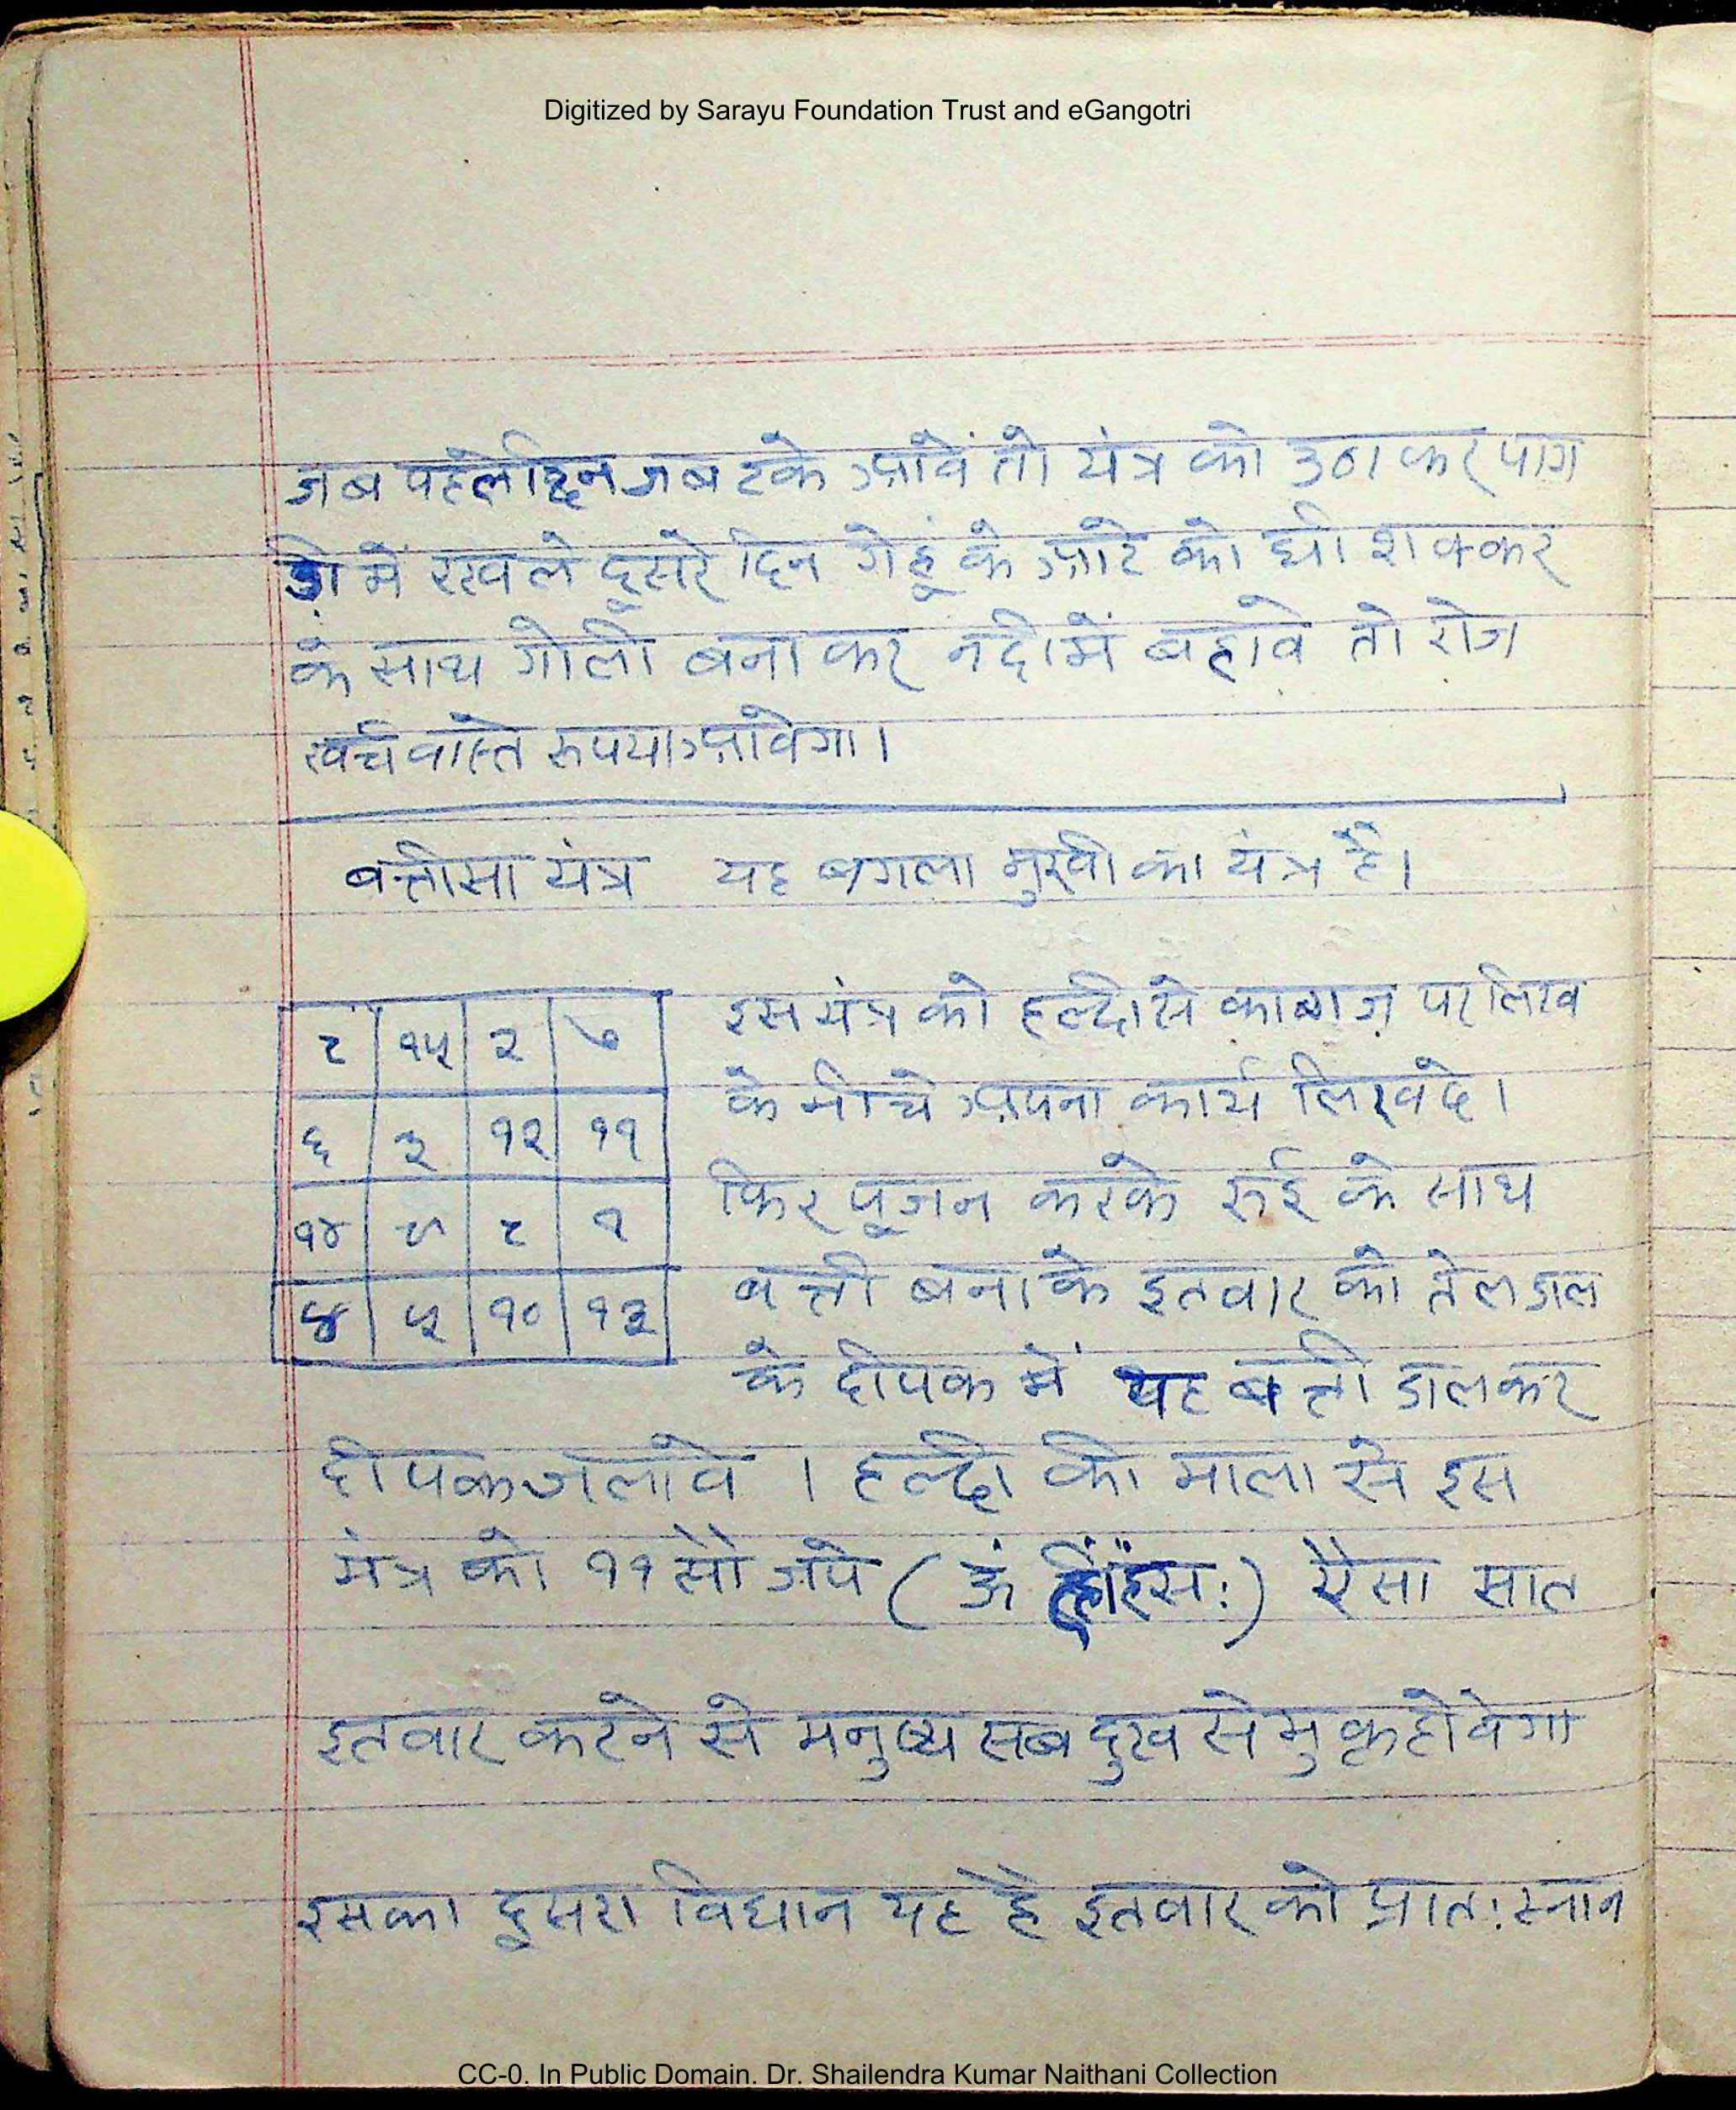 Digitized by Sarayu Foundation Trust and eGangotri
जब पहले दिन जब टके आवें तो यंत्र को उठा कर पाग
ड़ी में रखले दूसरे दिन गेहूं के आटे को घी शक्कर
के साथ गोली बना कर नदी में बहावे तो रोज
खर्च वास्ते रूपया आवेगा।
बत्तीसा यंत्र यह बगला मुखी का यंत्र है।
इस यंत्र को हल्दी से कागज़ पर लिख
८ १५ २ ७
के नीचे अपना कार्य लिखदे।
६ ३ १२ ११
फिर पूजन करके रुई के साथ
१४ ९ ८ १
बत्ती बनाके इतवार को तेल डाल
४ ५ १० १३
के दीपक में यह बत्ती डालकर
दीपक जलावे । हल्दी की माला से इस
मंत्र को ११ सौ जपे ( ऊं ह्लींहंसः) ऐसा सात
इतवार करने से मनुष्य सब दुख से मुक्त होवेगा
इसका दूसरा विधान यह है इतवार को प्रातः स्नान
CC-0. In Public Domain. Dr. Shailendra Kumar Naithani Collection